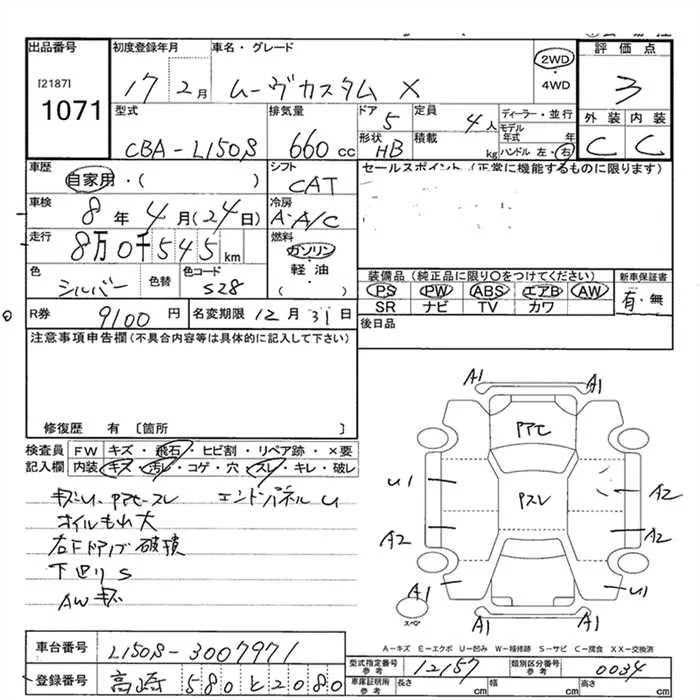 出品番号 初度登録年月 車名・グレード 評価点
[2187] 1071
17 2月 ムーヴカスタム X
2WD・4WD
3
型式 排気量 ドア 定員 ディーラー・並行
CBA-L150S 660cc 5 4人
モデル年式 年
形状 積載 ハンドル 左・右
HB kg
外装 内装
C C
車歴 シフト セールスポイント(正常に機能するものに限ります)
自家用・( ) CAT
車検 冷房
8年4月(24日) A・A/C
走行 燃料
8万0千545km ガソリン・軽油・( )
色 色替 色コード
シルバー S28
装備品(純正品に限り○をつけてください) 新車保証書
PS PW ABS エアB AW 有・無
SR ナビ TV カワ
R券 名変期限
9100円 12月31日
後日品
注意事項申告欄(不具合内容等は具体的に記入して下さい)
修復歴 有 〔箇所 〕
検査員記入欄
FW キズ・飛石・ヒビ割・リペア跡・×要
内装 キズ・汚レ・コゲ・穴・スレ・キレ・破レ
エンドパネル U
オイルもれ大
右Fドアノブ破損
下回りS
AWキズ
A1 A1
U1 A2
A2 A2
A1 U1
A1 A1
スペア
A-キズ E-エクボ U-凹み W-補修跡 S-サビ C-腐食 XX-交換済
車台番号 L150S-3007971
登録番号 高崎 580 と 2080
型式指定番号 参考 12157 類別区分番号 参考 0034
車庫証明用 参考 長さ cm 幅 cm 高さ cm